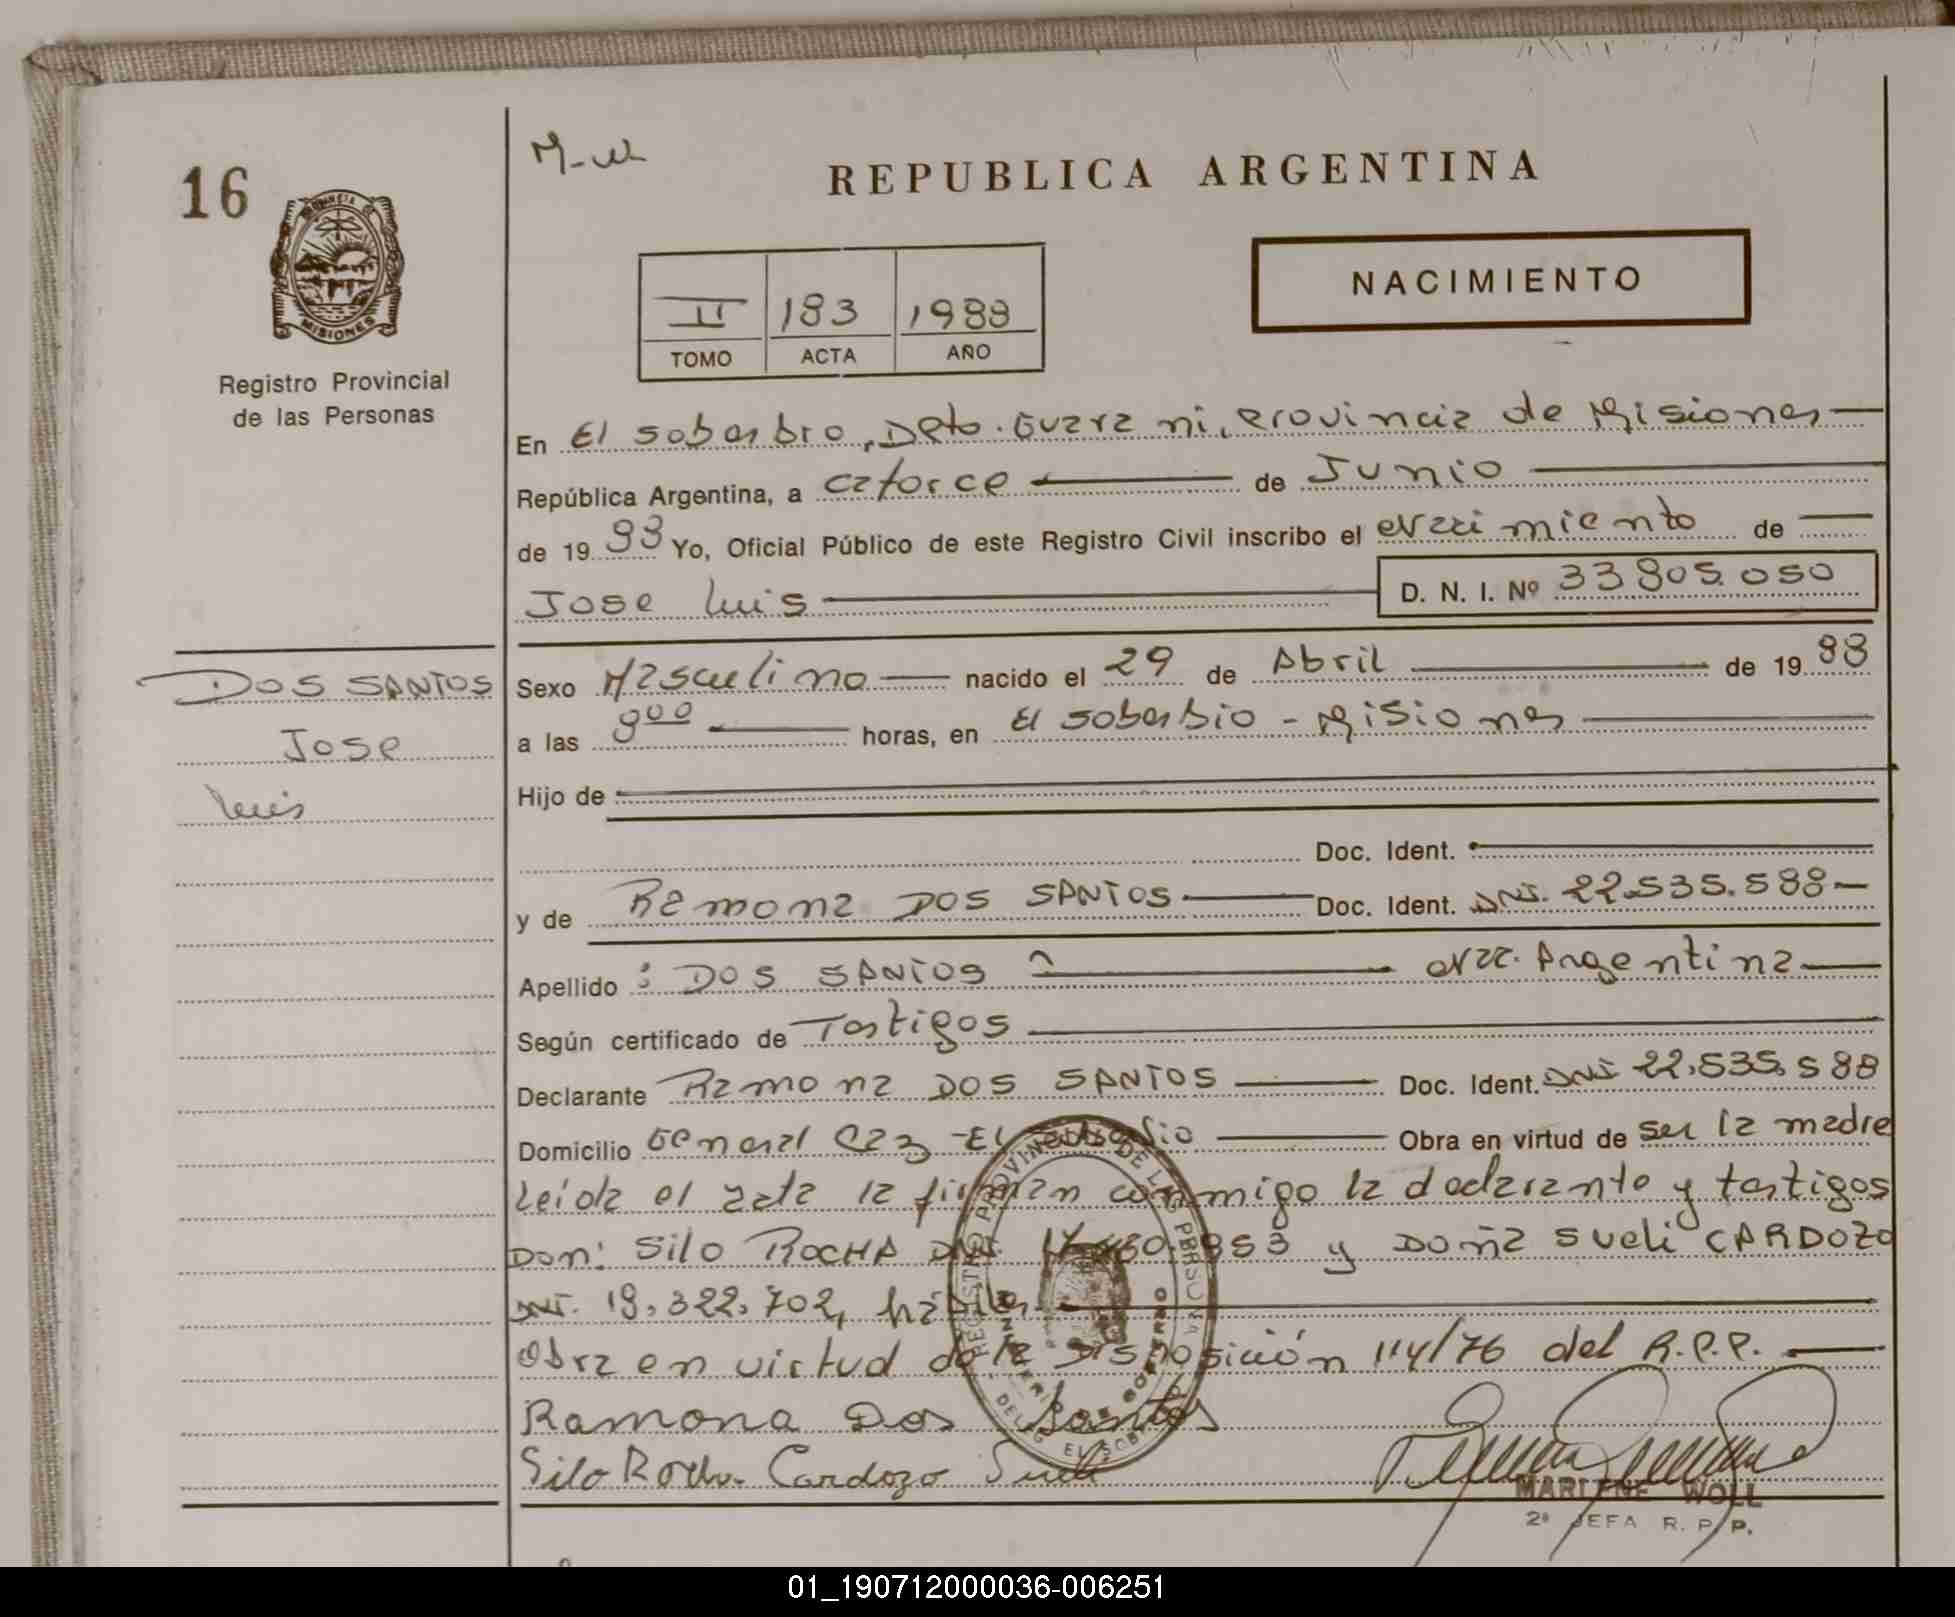 16
M-W
REPUBLICA ARGENTINA
II 183 1988
TOMO ACTA AÑO
NACIMIENTO
MISIONES
Registro Provincial
de las Personas
En El soberbio, Dpto. Guarani, Provincia de Misiones
República Argentina, a catorce de Junio
de 1988 Yo, Oficial Público de este Registro Civil inscribo el Nacimiento de
Jose Luis D. N. I. Nº 33.805.050
DOS SANTOS
Jose
Luis
Sexo Masculino nacido el 29 de Abril de 1988
a las 8⁰⁰ horas, en El soberbio - Misiones
Hijo de
Doc. Ident.
y de Ramona DOS SANTOS Doc. Ident. DNI. 22.535.588-
Apellido : DOS SANTOS Nac. Argentina
Según certificado de Testigos
Declarante Ramona DOS SANTOS Doc. Ident. DNI 22.535.588
Domicilio General Paz - El soberbio Obra en virtud de ser la madre
Leída el acta la firman conmigo la declarante y testigos
Don: Silo ROCHA DNI. 953 y Doña Sueli CARDOZO
DNI. 18.322.702, hábiles
Obra en virtud de la Disposición 114/76 del R.P.P.
Ramona Dos Santos
Silo Rocha Cardozo Sueli
REGISTRO PROVINCIAL DE LAS PERSONAS
MINISTERIO DE GOBIERNO
DELEG. EL SOBERBIO
MARLENE WOLL
2ª JEFA R. P. P.
01_190712000036-006251